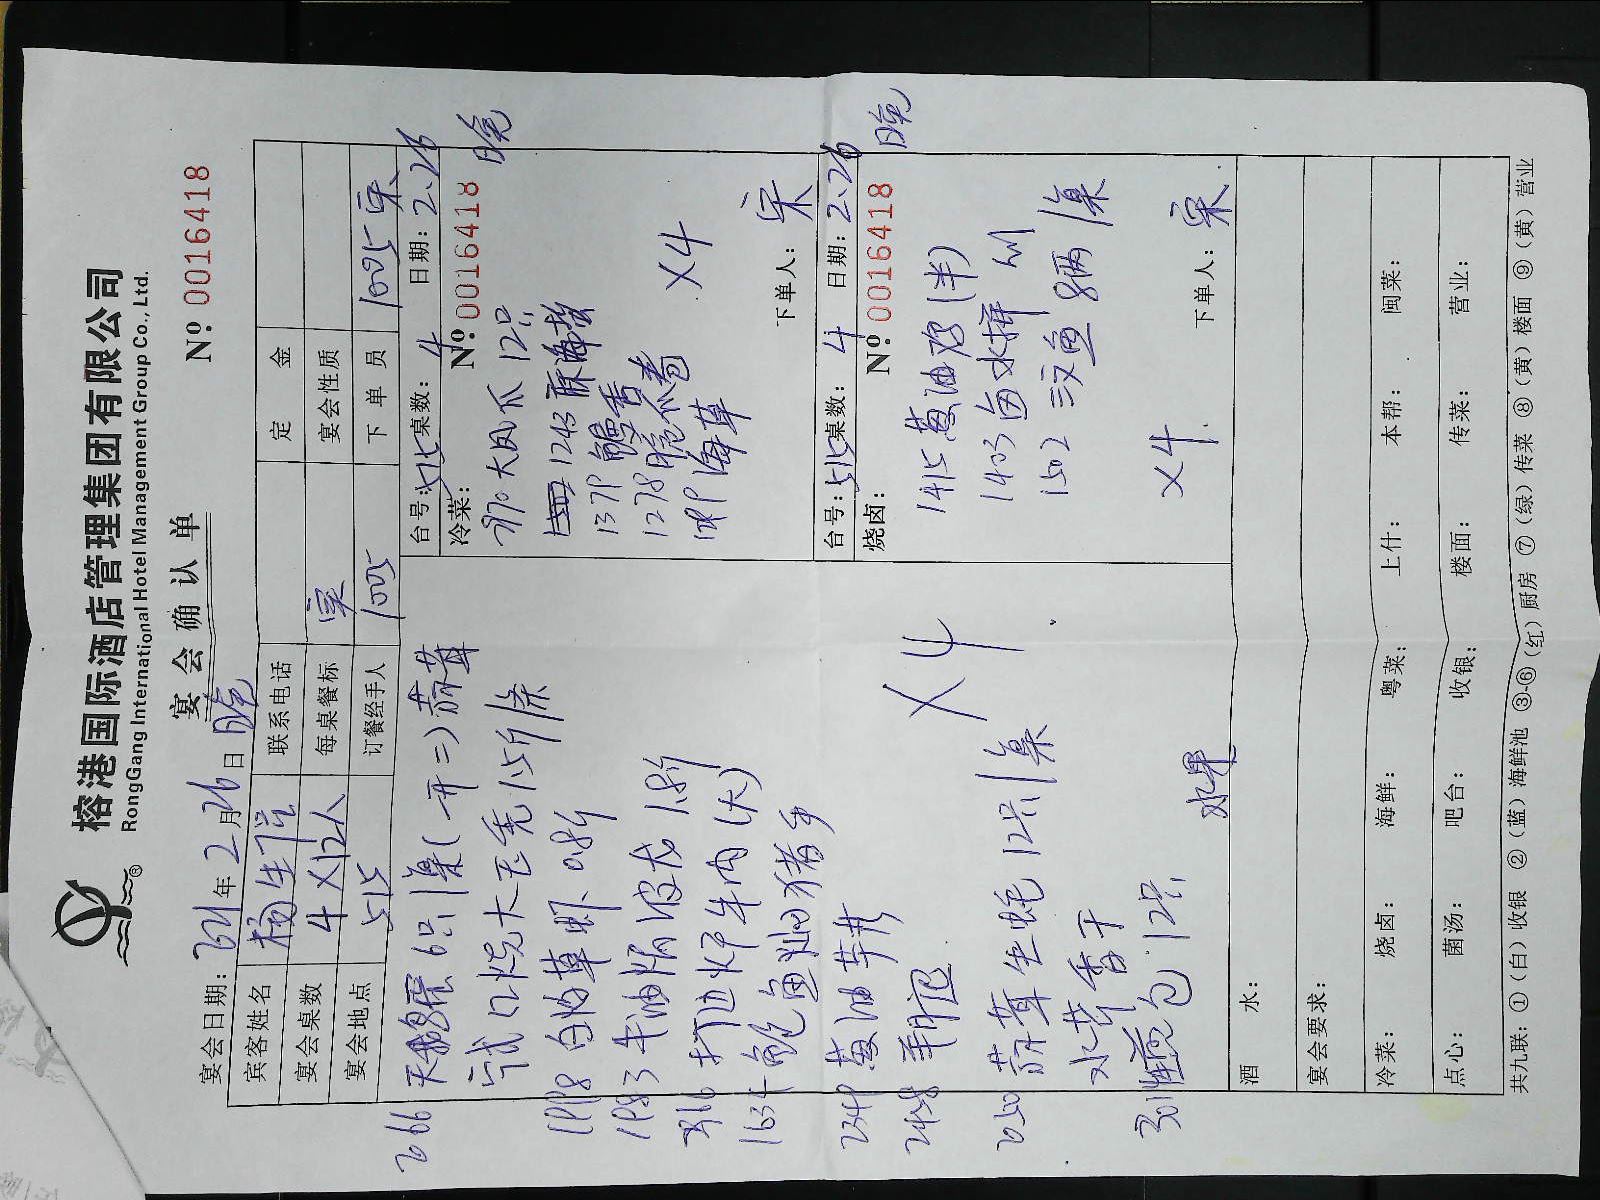 榕港国际酒店管理集团有限公司
RongGang International Hotel Management Group Co., Ltd.
®
宴会确认单
宴会日期: 年 2 月 26 日 晚
Nº: 0016418
宾客姓名 杨生 联系电话 定金
宴会桌数 4×12人 每桌餐标 宴会性质
宴会地点 515 订餐经手人 1005 下单员 1005 宋
2066 天鹅 6只 1条(一开二)蒜茸
1.5斤1条
1998 白灼草虾 0.8斤
1983 牛油焗波龙 1.8斤
打边炉牛肉(大)
1634 鲍鱼焖猪手
2349 葱油芋艿
羊腿
蒜茸生蚝 12只
水芹香干
301 燕包 12只
×4
水果
台号: 515 桌数: 4 日期: 2.26 晚
冷菜: Nº: 0016418
大凤爪 12只
1243 海蜇
1379
1278 脆瓜卷
海草
×4
下单人: 宋
台号: 515 桌数: 4 日期: 2.26 晚
烧卤: Nº: 0016418
1415 葱油鸡(半)
1403 卤水拼
1502 三文鱼 8两
×4
下单人: 宋
酒水:
宴会要求:
冷菜: 烧卤: 海鲜: 粤菜: 上什: 本帮: 闽菜:
点心: 菌汤: 吧台: 收银: 楼面: 传菜: 营业:
共九联: ①(白)收银 ②(蓝)海鲜池 ③-⑥(红)厨房 ⑦(绿)传菜 ⑧(黄)楼面 ⑨(黄)营业